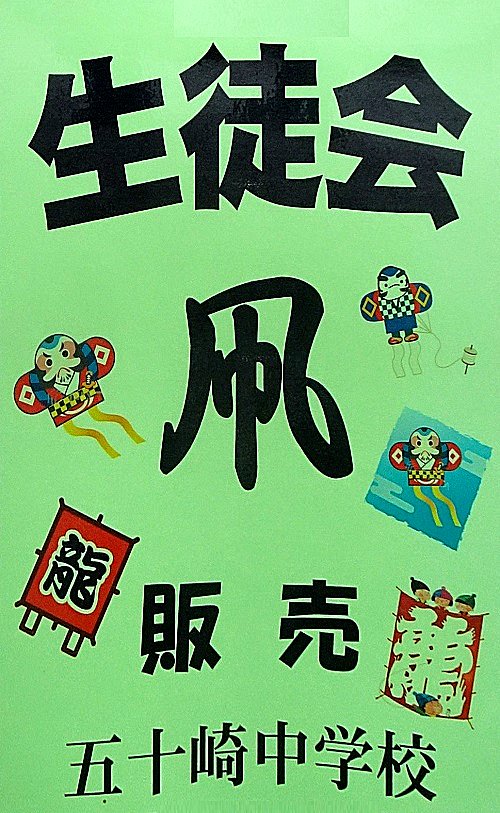 生徒会
凧
龍
販売
五十崎中学校